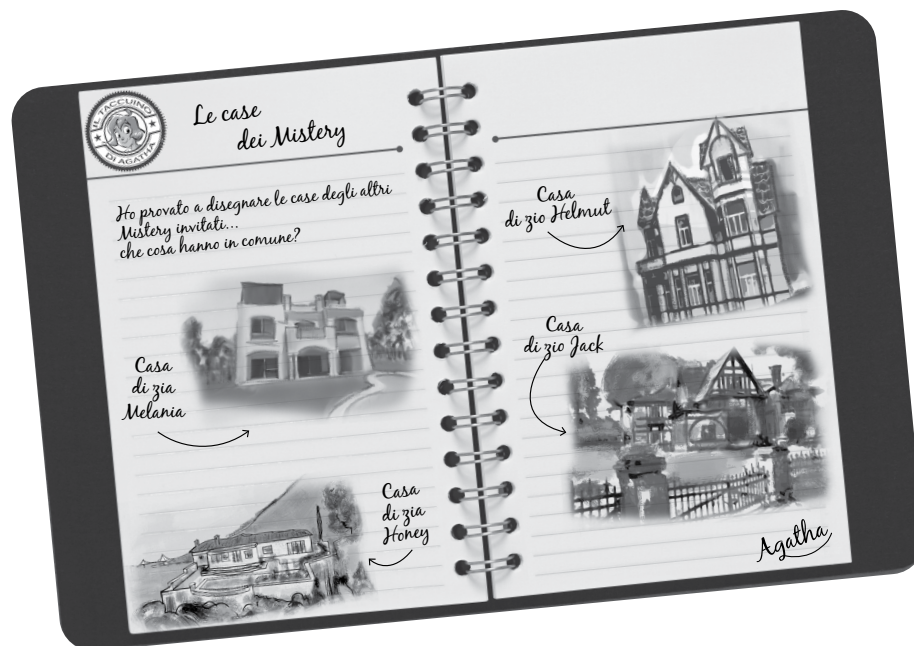 IL TACCUINO
DI AGATHA
Le case
dei Mistery
Ho provato a disegnare le case degli altri
Mistery invitati...
che cosa hanno in comune?
Casa
di zia
Melania
Casa
di zia
Honey
Casa
di zio Helmut
Casa
di zio Jack
Agatha